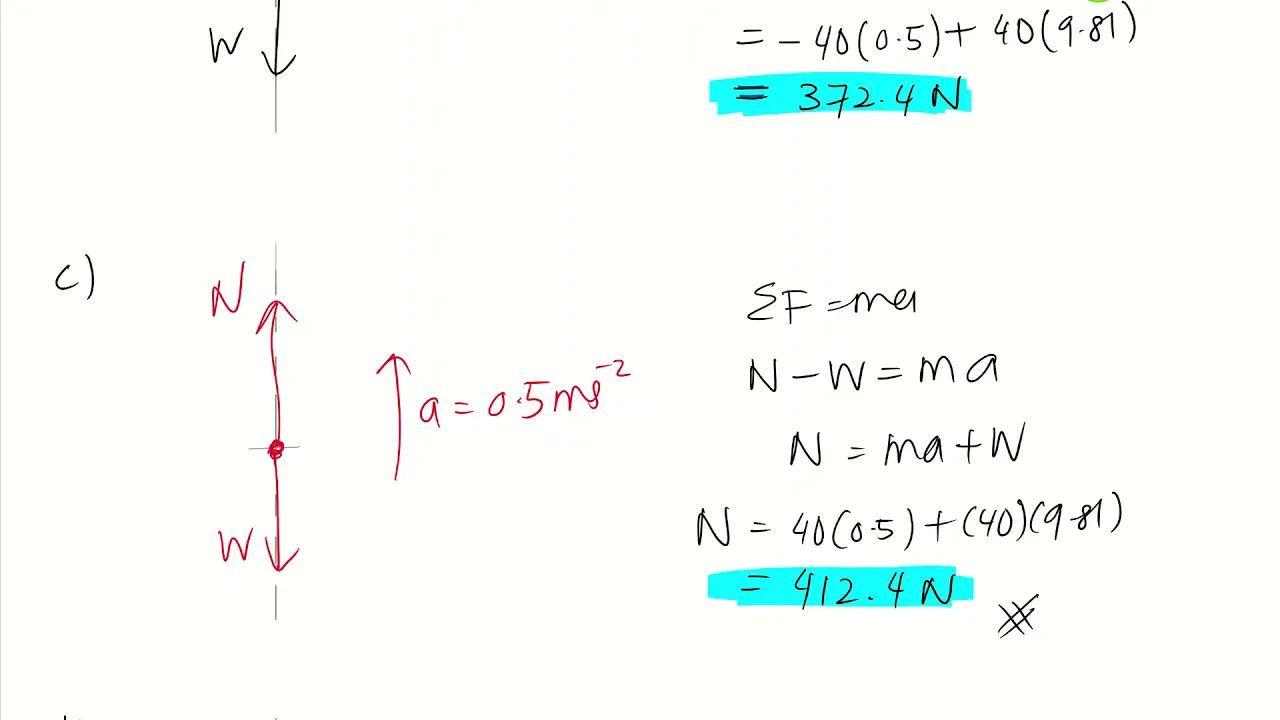 W
= - 40(0.5) + 40(9.81)
= 372.4 N
c)
N
a = 0.5 ms⁻²
W
ΣF = ma
N - W = ma
N = ma + W
N = 40(0.5) + (40)(9.81)
= 412.4 N